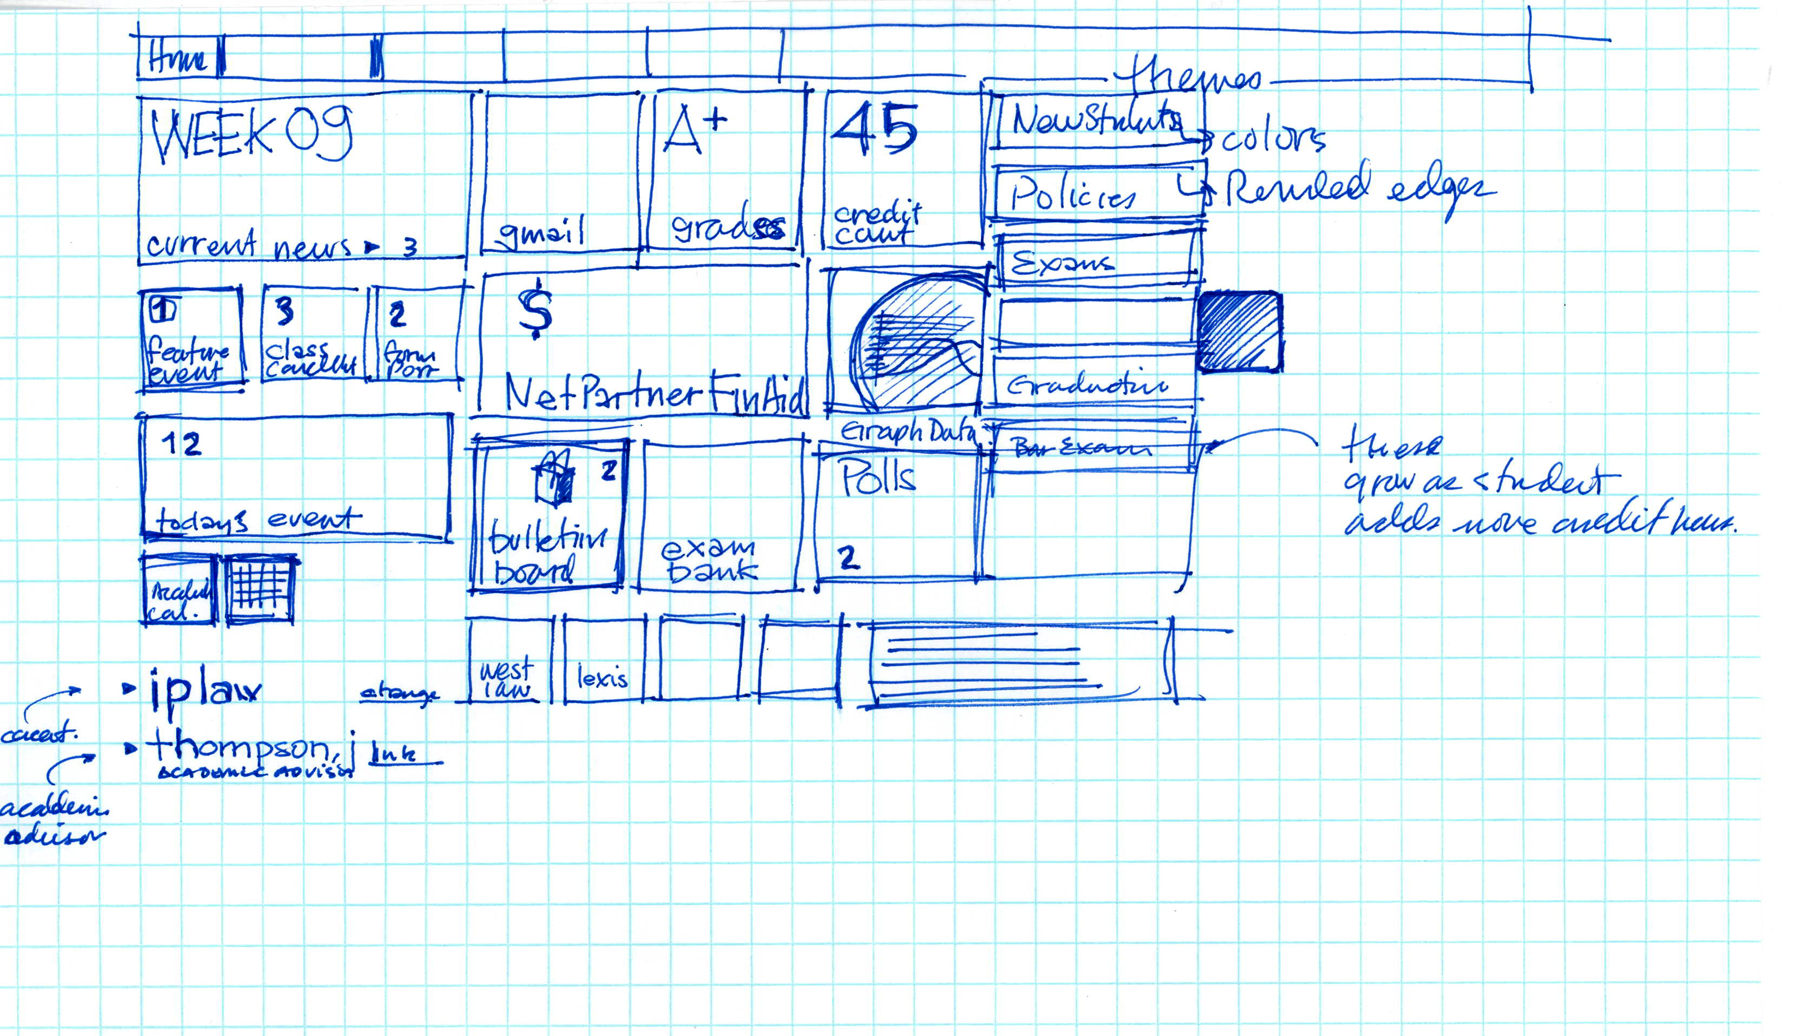 Home
themes
WEEK 09
current news ▸ 3
gmail
A+
grades
45
credit
New Students
colors
Policies
Rounded edges
Exams
1
feature
event
3
class
2
form
$
NetPartner FinAid
Graduation
Graph Data
Bar Exam
these
grow as student
adds more credit hours.
12
todays event
2
bulletin
board
exam
bank
Polls
2
cal.
west
law
lexis
▸ iplaw
change
▸ thompson, j link
ACADEMIC ADVISOR
academic
advisor